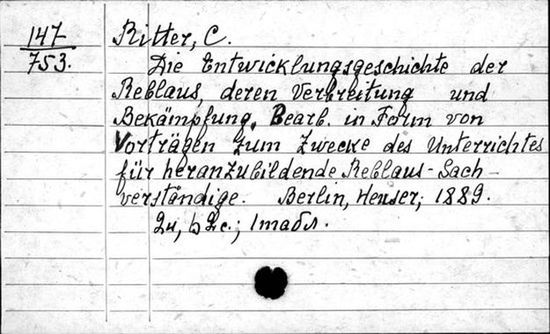 147
753.
Ritter, C.
Die Entwicklungsgeschichte der
Reblaus, deren Verbreitung und
Bekämpfung. Bearb. in Form von
Vorträgen zum Zwecke des Unterrichtes
für heranzubildende Reblaus-Sach-
verständige. Berlin, Heuser, 1889.
1 табл.